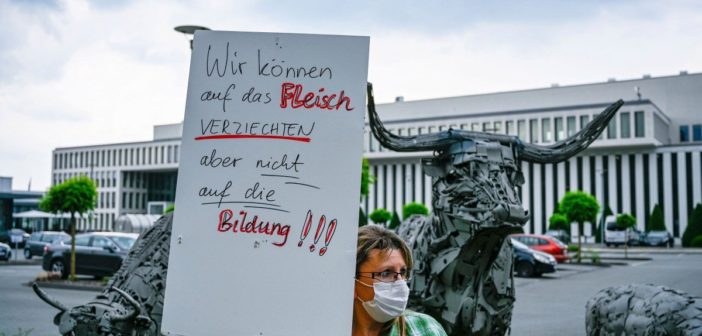 Wir können
auf das FLeisch
VERZIECHTEN
aber nicht
auf die
Bildung!!!